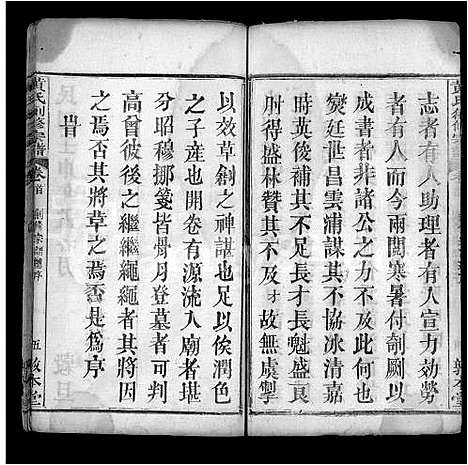 志者有人助理者有人宣力効勞
者有人而今兩閱寒暑付剞劂以
成書者非諸公之力不及此
爕廷世昌雲浦謀其不協冰清嘉
時英後嗣長才其不及長魁盛良
輔得其林贊其不及才故無虞掣
以效草創之神諶也以俟潤色
之子產也開卷有源流入廟者堪
分昭穆挪箋皆骨月登墓者可示
高曾彼後之繼繼繩繩者其將因
之焉否其將草之焉否是為序
黃氏創修宗譜
卷首
五
敦本堂